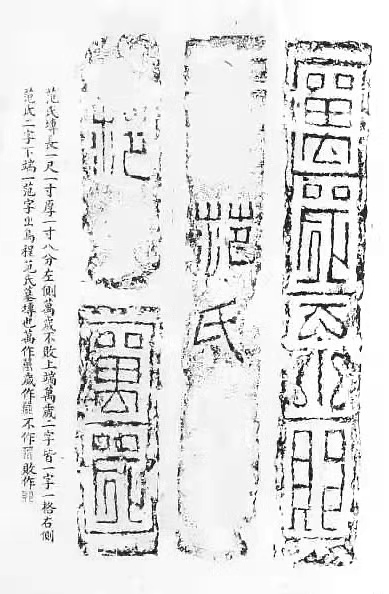 萬歲不敗
范氏
范
萬歲
范氏塼長一尺一寸厚一寸八分左側萬歲不敗上端萬歲二字皆一字一格右側
范氏二字下端一范字出烏程范氏墓塼也萬作歲作不作敗作